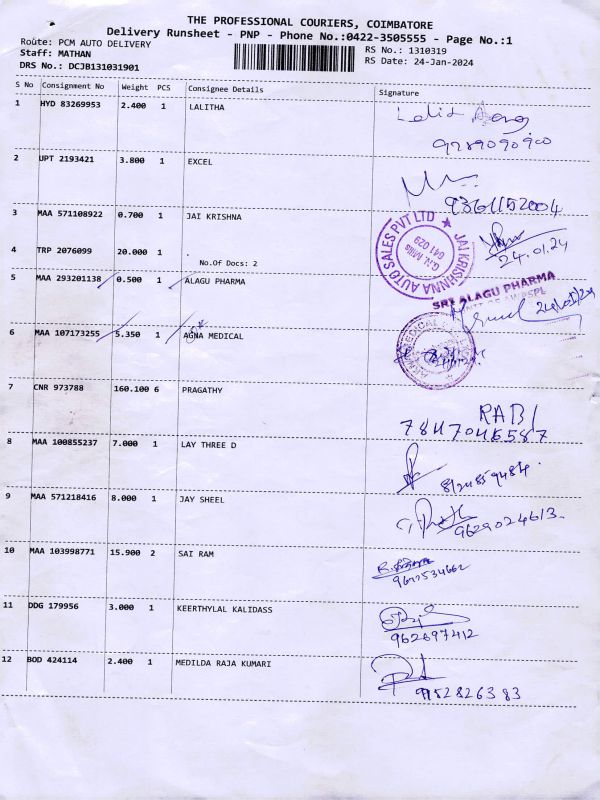 THE PROFESSIONAL COURIERS, COIMBATORE
Delivery Runsheet - PNP - Phone No.:0422-3505555 - Page No.:1
Route: PCM AUTO DELIVERY
Staff: MATHAN
RS No.: 1310319
DRS No.: DCJB131031901
RS Date: 24-Jan-2024
S No Consignment No Weight PCS Consignee Details Signature
1 HYD 83269953 2.400 1 LALITHA
9789090900
2 UPT 2193421 3.800 1 EXCEL
9361152004
3 MAA 571108922 0.700 1 JAI KRISHNA
JAI KRISHNNA AUTO SALES PVT LTD ★
G.N. Mills
641 029
24.01.24
4 TRP 2076099 20.000 1
No.Of Docs: 2
5 MAA 293201138 0.500 1 ALAGU PHARMA
SRI ALAGU PHARMA
6 MAA 107173255 5.350 1 AGNA MEDICAL
MEDICAL
7 CNR 973788 160.100 6 PRAGATHY
RABI
7847046587
8 MAA 100855237 7.000 1 LAY THREE D
8124859484
9 MAA 571218416 8.000 1 JAY SHEEL
9629024613
10 MAA 103998771 15.900 2 SAI RAM
11 DDG 179956 3.000 1 KEERTHYLAL KALIDASS
962697412
12 BOD 424114 2.400 1 MEDILDA RAJA KUMARI